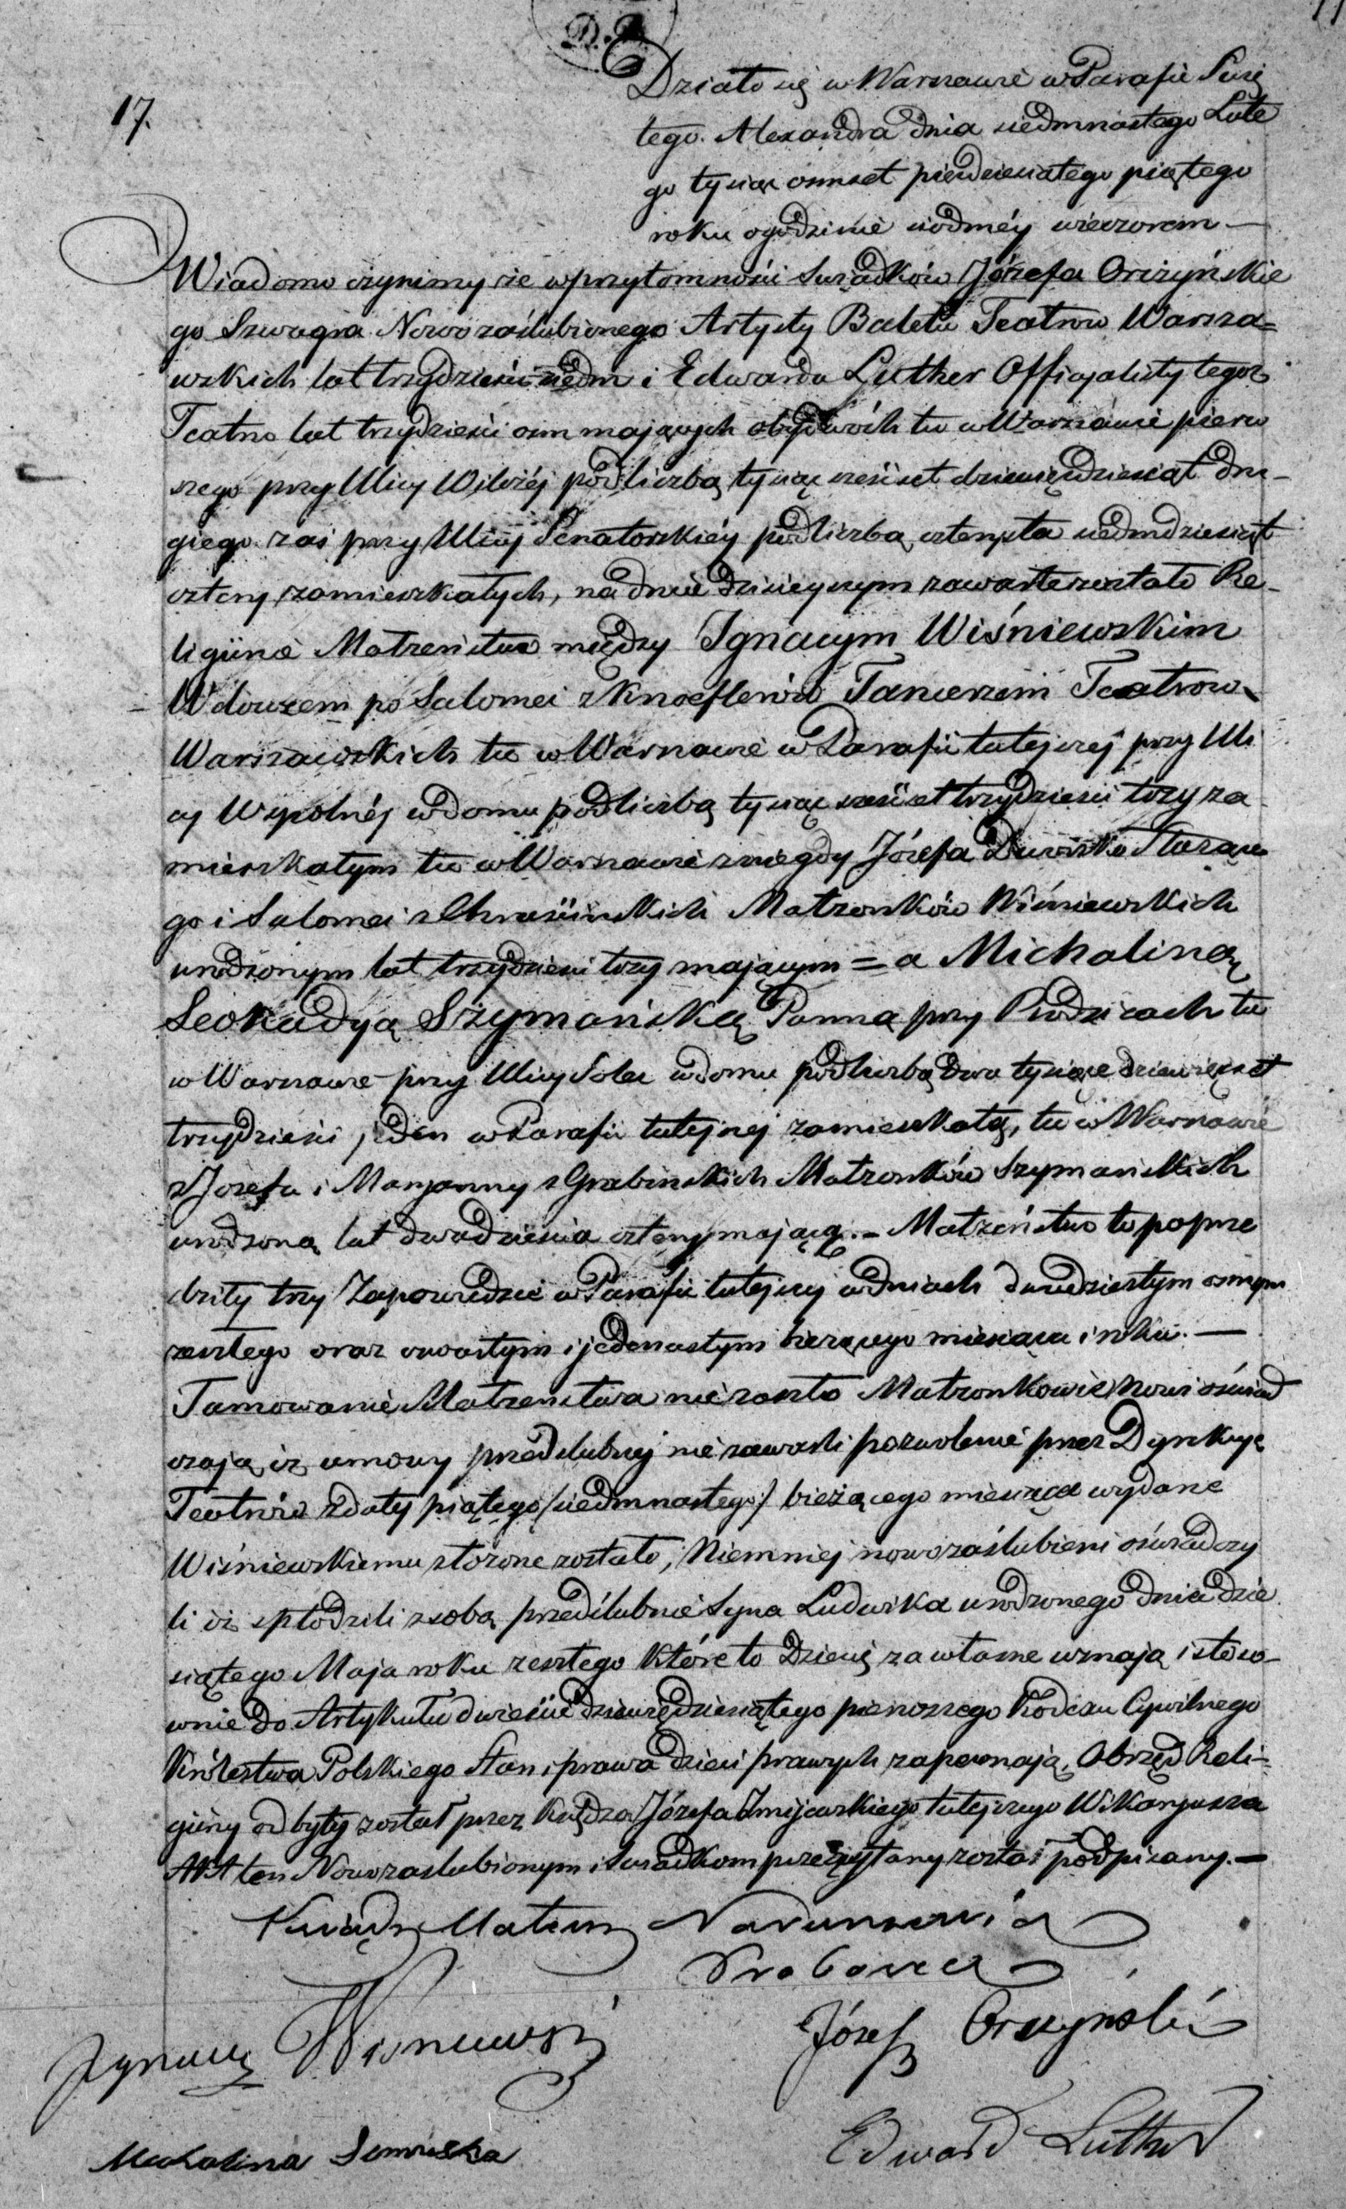 17.
Działo się w Warszawie w Parafii Świę
tego Alexandra dnia siedmnastego Lute
go tysiąc ośmset piędziesiątego piątego
roku o godzinie siódméy wieczorem —
Wiadomo czynimy że w przytomności Świadków Józefa Orczyńskie
go Szwagra Nowozaślubionego Artysty Baletu Teatrów Warsza=
wskich lat trzydzieści siedm i Edwarda Luther Officjalisty tegoż
Teatru lat trzydzieści ośm mających obydwóch tu w Warszawie pierw
szego przy Ulicy Wilczéj pod liczbą tysiąc sześćset dziewiędziesiąt dru-
giego zaś przy Ulicy Senatorskiéy pod liczbą czterysta siedmdziesiąt
cztery zamieszkałych, na dniu dzisieyszym zawarte zostało Re-
ligijne Małżeństwo między Ignacym Wiśniewskim
Wdowcem po Salomei z Knoeflerów Tancerzem Teatrów
Warszawskich tu w Warszawie w Parafii tutejszej przy Uli
cy Wspólnéj w domu pod liczbą tysiąc sześćset trzydzieści trzy za
mieszkałym tu w Warszawie z niegdy Józefa Dworsko Służące
go i Salomei z Chrościńskich Małżonków Wiśniewskich
urodzonym lat trzydzieści trzy mającym = a Michaliną
Leokadyą Szymańską Panną przy Rodzicach tu
w Warszawie przy Ulicy Solec w domu pod liczbą dwa tysiące dziewięćset
trzydzieści jeden w Parafii tutejszej zamieszkałą, tu w Warszawie
z Józefa i Maryanny z Grabińskich Małżonków Szymańskich
urodzoną lat dwadzieścia cztery mającą. – Małżeństwo to poprze
dziły trzy Zapowiedzie w Parafii tutejszej w dniach dwudziestym osmym
zeszłego oraz czwartym i jedenastym bieżącego miesiąca i roku. —
Tamowanie Małżeństwa nie zaszło Małżonkowie Nowi oświad
czają iż umowy przedślubnej nie zawarli pozwolenie przez Dyrekcyę
Teatrów z daty piątego /siedmnastego/ bieżącego miesiąca wydane
Wiśniewskiemu złożone zostało, Niemniej nowozaślubieni oświadczy
li iż spłodzili z sobą przedślubnie Syna Ludwika urodzonego dnia dzie
siątego Maja roku zeszłego które to Dziecię za własne uznają i stoso-
wnie do Artykułu dwieście dziewiędziesiątego pierwszego Kodexu Cywilnego
Królestwa Polskiego Stan i prawa dzieci prawych zapewniają. Obrzęd Reli-
gijny odbyty został przez Księdza Józefa Żmijewskiego tutejszego Wikaryusza
Akt ten Nowozaślubionym i Świadkom przeczytany został i podpisany. —
Józef Orczyński
Ignacy Wiśniewski
Edward Luther
Michalina